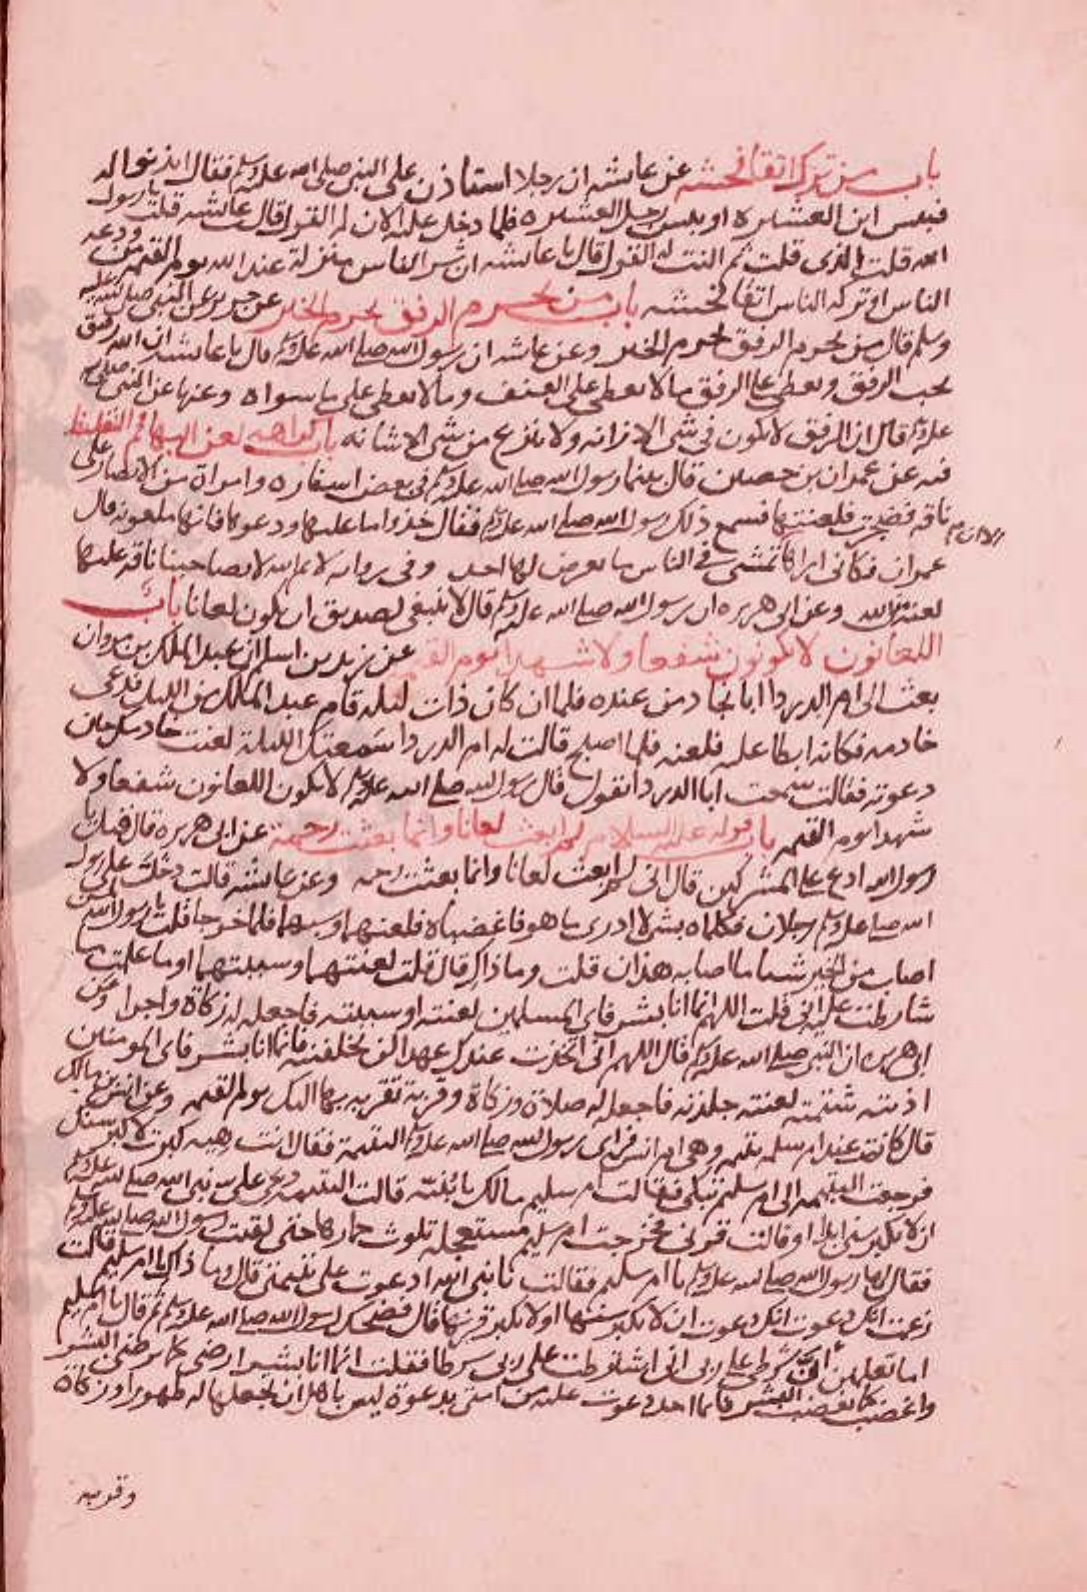 باب من ترك اتقا فحشه عن عايشه ان رجلا استاذن على النبي صلى الله عليه وسلم فقال ايذنوا له
فبيس ابن العشيره او بيس رجل العشيره فلما دخل عليه الان له القول قال عائشه قلت يا رسول
الله قلت الذى قلت ثم النت له القول قال يا عايشه ان شر الناس منزلة عند الله يوم القيمه من ودعه
الناس او تركه الناس اتقا فحشه باب من يحرم الرفق يحرم الخير عن جرير عن النبى صلى الله عليه
وسلم قال من يحرم الرفق يحرم الخير وعن عايشه ان رسول الله صلى الله عليه وسلم قال يا عايشه ان الله رفيق
يحب الرفق ويعطى على الرفق ما لا يعطى على العنف وما لا يعطى على ما سواه وعنها عن النبى صلى الله
عليه وسلم قال ان الرفق لا يكون فى شى الا زانه ولا ينزع من شى الا شانه باب كراهيه لعن البهايم والتغليظ
فيه عن عمران بن حصين قال بينما رسول الله صلى الله عليه وسلم فى بعض اسفاره وامراة من الانصار على
ناقه فضجرت فلعنتها فسمع ذلك رسول الله صلى الله عليه وسلم فقال خذوا ما عليها ودعوها فانها ملعونه قال
عمران فكانى اراها تمشى فى الناس ما يعرض لها احد وفى روايه لا تصاحبنا ناقه عليها
لعنة من الله وعن ابى هريره ان رسول الله صلى الله عليه وسلم قال لا ينبغى لصديق ان يكون لعانا باب
اللعانون لا يكونون شفعا ولا شهدا يوم القيمه عن زيد بن اسلم ان عبد الملك بن مروان
بعث الى ام الدردا بانجاد من عنده فلما ان كان ذات ليله قام عبد الملك من الليل فدعى
خادمه فكانه ابطا عليه فلعنه فلما اصبح قالت له ام الدردا سمعتك الليلة لعنت خادمك حين
دعوته فقالت سمعت ابا الدردا يقول قال رسول الله صلى الله عليه وسلم لا يكون اللعانون شفعا ولا
شهدا يوم القيمه باب قوله عليه السلام لم ابعث لعانا وانما بعثت رحمة عن ابى هريره قال قيل يا
رسول الله ادع على المشركين قال انى لم ابعث لعانا وانما بعثت رحمه وعن عايشه قالت دخل على رسول
الله صلى الله عليه وسلم رجلان فكلماه بشى لا ادرى ما هو فاغضباه فلعنهما وسبهما فلما خرجا قلت يا رسول الله لمن
اصاب من الخير شيا ما اصابه هذان قلت وما ذاك قال قلت لعنتهما وسببتهما او ما علمت ما
شارطت عليه انى قلت اللهم انما انا بشر فاى المسلمين لعنته او سببته فاجعله له زكاة واجرا وعن
ابى هريره ان النبى صلى الله عليه وسلم قال اللهم انى اتخذت عندك عهدا لن تخلفنيه فانما انا بشر فاى المومنين
اذيته شتمته لعنته جلدته فاجعله له صلاة وزكاة وقربة تقربه بها اليك يوم القيمه وعن انس بن مالك
قال كانت عند ام سليم يتيمه وهى ام انس فراى رسول الله صلى الله عليه وسلم اليتيمة فقال انت هيه كبرت لا كبر سنك
فرجعت اليتيمه الى ام سليم تبكى فقالت ام سليم مالك يا بنيه قالت اليتيمه دعى على نبى الله صلى الله عليه وسلم
ان لا يكبر سنى ابدا او قالت قرنى فخرجت ام سليم مستعجله تلوث خمارها حتى لقيت رسول الله صلى الله عليه وسلم
فقال لها رسول الله صلى الله عليه وسلم يا ام سليم فقالت يا نبى الله ادعوت على يتيمتى قال وما ذاك يا ام سليم قالت
زعمت انك دعوت ان لا يكبر سنها او لا يكبر قرنها قال فضحك رسول الله صلى الله عليه وسلم ثم قال يا ام سليم
اما تعلمين ان شرطى على ربى انى اشترطت على ربى شرطا فقلت انما انا بشر ارضى كما يرضى البشر
واغضب كما يغضب البشر فايما احد دعوت عليه من امتى بدعوة ليس باهل ان يجعلها له طهورا وزكاة
وقربه